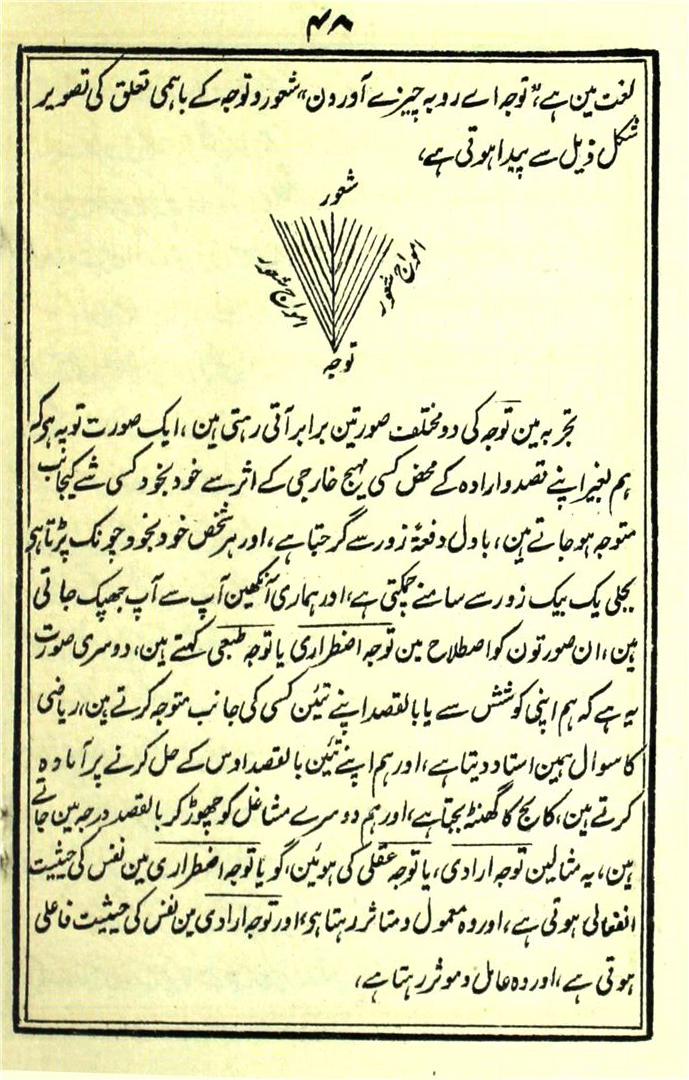 ۴۸
لغت مین ہے، "توجہ اے رو بہ چیزے آوردن" شعور و توجہ کے باہمی تعلق کی تصویر
شکل ذیل سے پیدا ہوتی ہے،
شعور
امواج شعور
امواج شعور
توجہ
تجربہ مین توجہ کی دو مختلف صورتین برابر آتی رہتی ہین، ایک صورت تو یہ ہو کہ
ہم بغیر اپنے قصد و ارادہ کے محض کسی مہیج خارجی کے اثر سے خود بخود کسی شے کیجانب
متوجہ ہو جاتے ہین، بادل دفعۃً زور سے گرجتا ہے، اور ہر شخص خود بخود چونک پڑتا ہو
بجلی یک بیک زور سے سامنے چمکتی ہے، اور ہماری آنکھین آپ سے آپ جھپک جاتی
ہین، ان صورتون کو اصطلاح مین توجہ اضطراری یا توجہ طبعی کہتے ہین، دوسری صورت
یہ ہے کہ ہم اپنی کوشش سے یا بالقصد اپنے تئین کسی کی جانب متوجہ کرتے ہین، ریاضی
کا سوال ہمین استاد دیتا ہے، اور ہم اپنے تئین بالقصد اوس کے حل کرنے پر آمادہ
کرتے ہین، کالج کا گھنٹہ بجتا ہے، اور ہم دوسرے مشاغل کو چھوڑ کر بالقصد درجہ مین جاتے
ہین، یہ مثالین توجہ ارادی، یا توجہ عقلی کی ہوئین، گویا توجہ اضطراری مین نفس کی حیثیت
انفعالی ہوتی ہے، اور وہ معمول و متاثر رہتا ہو، اور توجہ ارادی مین نفس کی حیثیت فاعلی
ہوتی ہے، اور وہ عامل و موثر رہتا ہے،